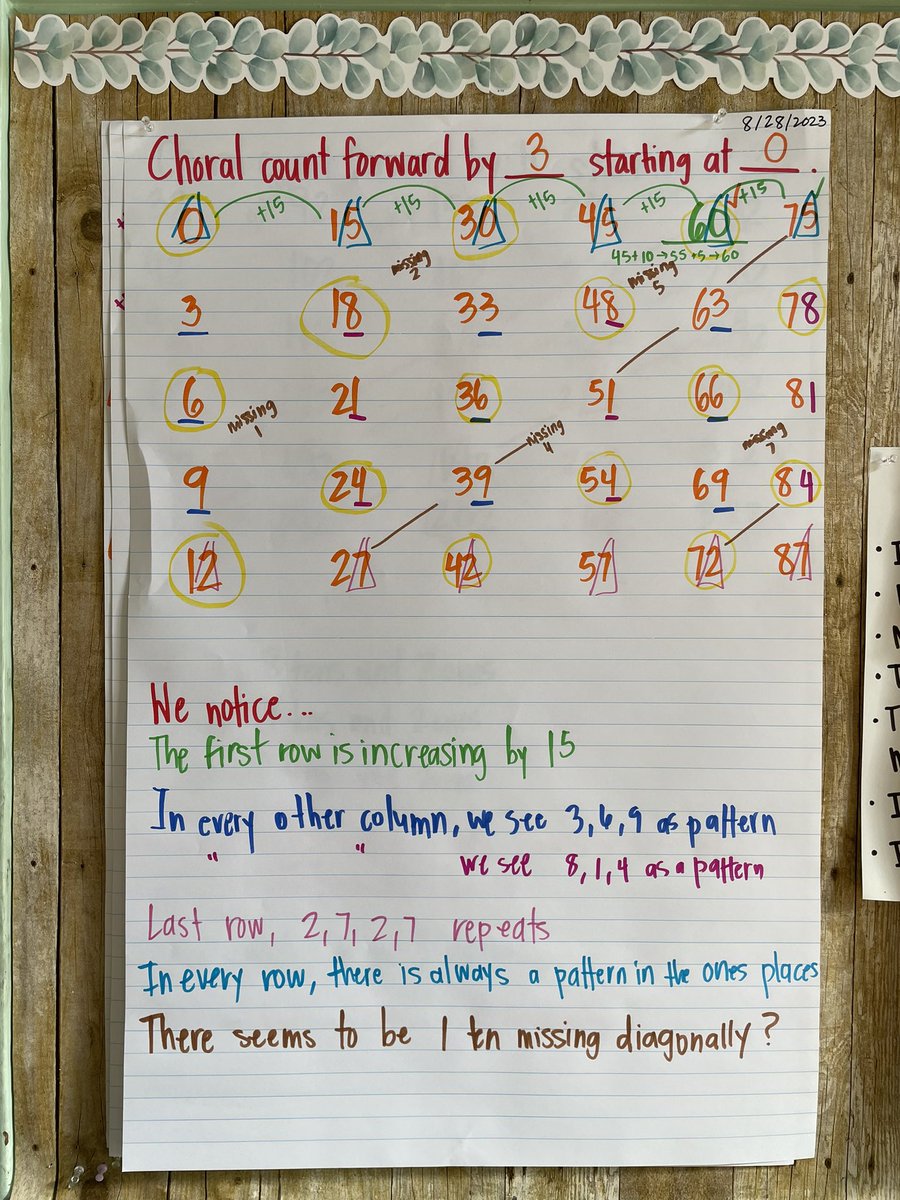 8/28/2023
Choral count forward by 3 starting at 0.
+15 +15 +15 +15 +15
0 15 30 45 60 75
45+10→55+5→60
missing 2
missing 5
3 18 33 48 63 78
6 21 36 51 66 81
missing 1
missing 4
missing 7
9 24 39 54 69 84
12 27 42 57 72 87
We notice...
The first row is increasing by 15
In every other column, we see 3, 6, 9 as pattern
" " we see 8, 1, 4 as a pattern
Last row, 2, 7, 2, 7 repeats
In every row, there is always a pattern in the ones places
There seems to be 1 ten missing diagonally?